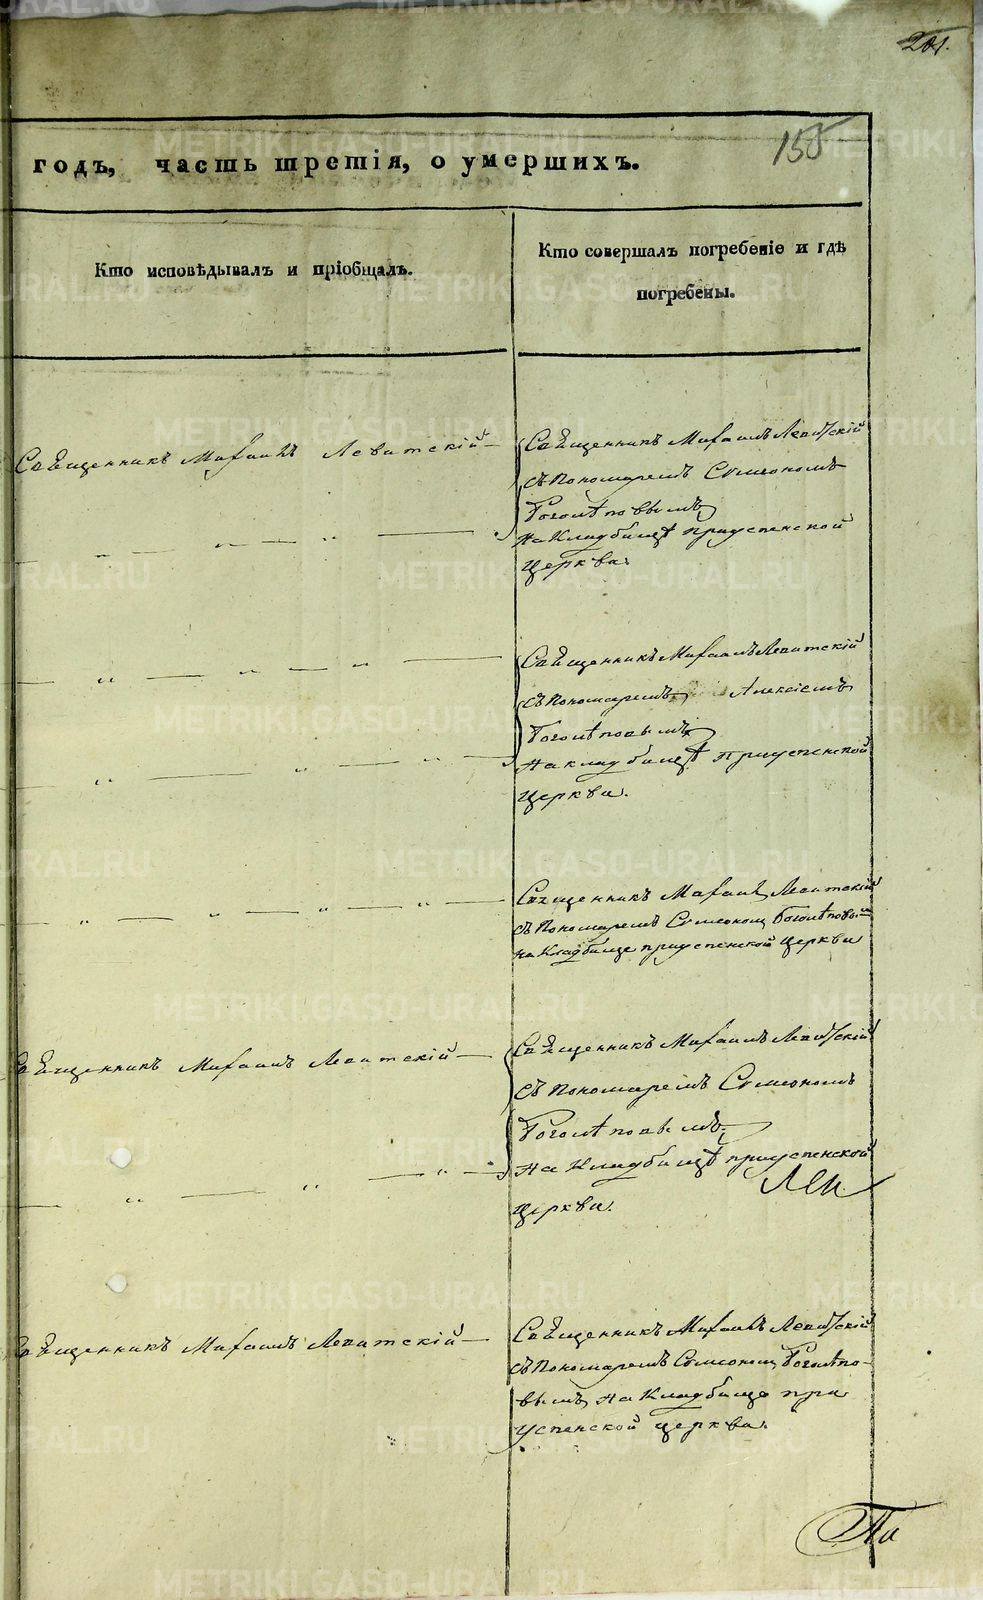 201.
155
годъ, часть третія, о умершихъ.
Кто исповѣдывалъ и пріобщалъ.
Кто совершалъ погребеніе и гдѣ
погребены.
Священникъ Михаилъ Левитскій
Священникъ Михаилъ Левитскій
съ Пономаремъ Симеономъ
Боголѣповымъ
на Кладбищѣ приуспенской
церкви.
Священникъ Михаилъ Левитскій
съ Пономаремъ Алексіемъ
Боголѣповымъ
на кладбищѣ приуспенской
церкви.
Священникъ Михаилъ Левитскій
съ Пономаремъ Симеоном Боголѣповым
на Кладбище приуспенской церкви
Священникъ Михаилъ Левитскій
Священникъ Михаилъ Левитскій
съ Пономаремъ Симеономъ
Боголѣповымъ
на Кладбищѣ приуспенской
церкви.
Священникъ Михаилъ Левитскій
Священникъ Михаилъ Левитскій
съ Пономаремъ Симеоном Боголѣпо-
вымъ на Кладбище при
успенской церкви.
По
METRIKI.GASO-URAL.RU